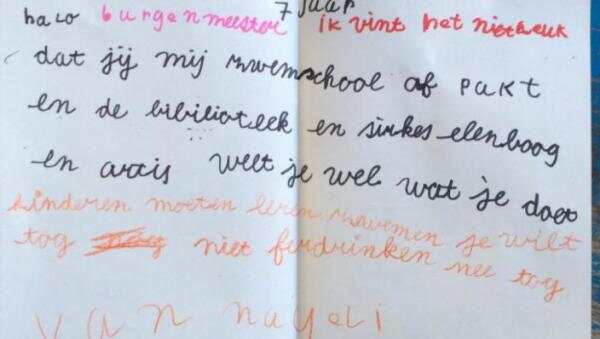 7 jaar
halo burgenmeester ik vint het niet leuk
dat jij mij zwemschool af pakt
en de bibilioteek en sirkes elenboog
en artis weet je wel wat je doet
kinderen moeten leren zwemen je wilt
tog niet ferdrinken nee tog
van nayeli